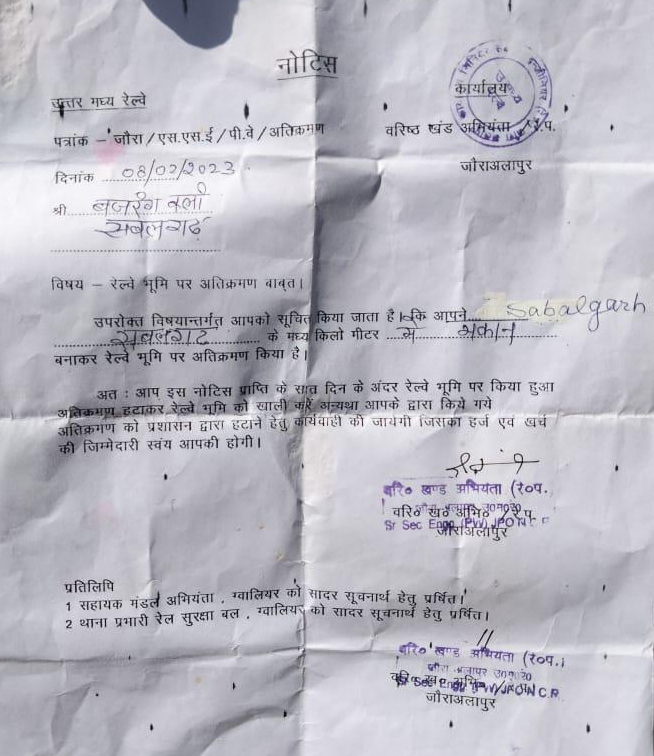 नोटिस
उत्तर मध्य रेल्वे
कार्यालय
पत्रांक – जौरा/एस.एस.ई/पी.वे/अतिक्रमण
वरिष्ठ खंड अभियंता/रे.प.
दिनांक 08/02/2023
जौराअलापुर
श्री बजरंग बली
सबलगढ
विषय – रेल्वे भूमि पर अतिक्रमण बाबत।
उपरोक्त विषयान्तर्गत आपको सूचित किया जाता है। कि आपने Sabalgarh
सबलगढ के मध्य किलो मीटर में मकान
बनाकर रेल्वे भूमि पर अतिक्रमण किया है।
अत : आप इस नोटिस प्राप्ति के सात दिन के अंदर रेल्वे भूमि पर किया हुआ
अतिक्रमण हटाकर रेल्वे भूमि को खाली करें अन्यथा आपके द्वारा किये गये
अतिक्रमण को प्रशासन द्वारा हटाने हेतु कार्यवाही की जायेगी जिसका हर्ज एवं खर्च
की जिम्मेदारी स्वंय आपकी होगी।
वरि० खण्ड अभियंता (रे०प.
वरि० ख० अभि० /रे.प.
Sr Sec Engg (PW) JPO N C R
जौराअलापुर
प्रतिलिपि
1 सहायक मंडल अभियंता , ग्वालियर को सादर सूचनार्थ हेतु प्रर्षित।
2 थाना प्रभारी रेल सुरक्षा बल , ग्वालियर को सादर सूचनार्थ हेतु प्रर्षित।
वरि० खण्ड अभियंता (रे०प.)
जौरा अलापुर उ०म०रे०
Sr Sec Engg (PW) JPO N C R
जौराअलापुर